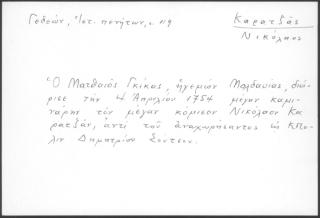 Γεδεών, Ἱστ. πενήτων, σ. 119
Καρατζᾶς
Νικόλαος
Ὁ Ματθαῖος Γκίκας, ἡγεμὼν Μολδαυίας, διώ-
ρισε τὴν 4 Ἀπριλίου 1754 μέγαν καμι-
νάρην τὸν μέγαν κόμισον Νικόλαον Κα
ρατζᾶν, ἀντὶ τοῦ ἀναχωρήσαντος εἰς Κπο-
λιν Δημητρίου Σούτσου.